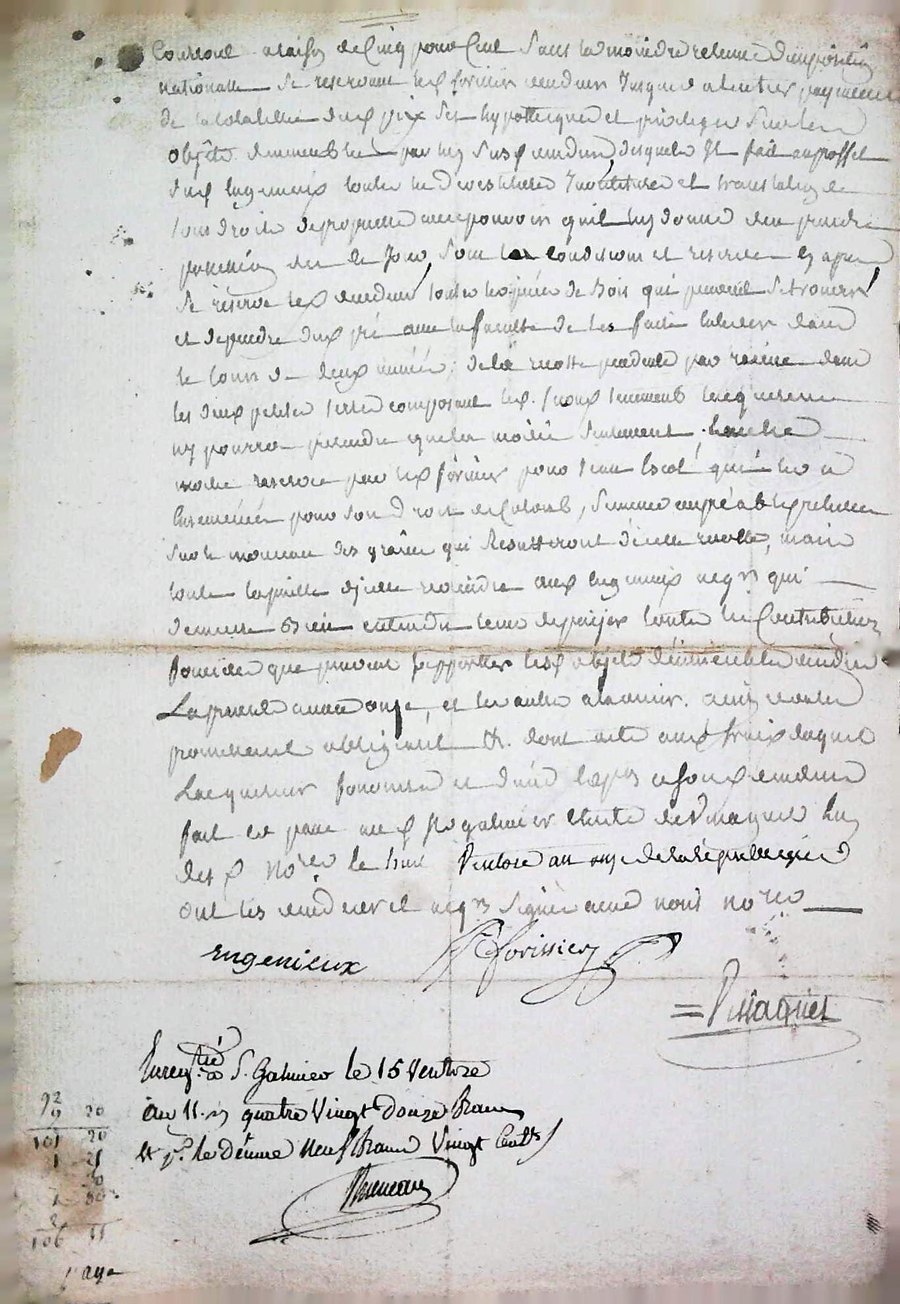 Courront a raison de Cinq pour Cent Sans la moindre retenue d'imposition
nationalle Se reservant led forissier vendeur Jusques a l'entier payement
de la totalitté dud prix Ses hypotteques et privileges Sur les
objets d'immeubles par luy Susd vendus desquels Il fait au proffit
dud Ingenieux toutes les devestitures Investitures et translation de
tous droits de proprietté avec pouvoir qu'il luy donne d'en prendre
possession des Ce Jour, Sous les conditions et reserves cy apres
Se reserve led vendeur toutes les pieces de bois qui peuvent Se trouver
et dependre dud pré avec la faculté de les faire enlever dans
le Cours de deux années; de la recolte pendante par racine dans
les deux petites terres composant led tenement lacquereur
ny pourra prendre que la moitié Seulement, l'autre
moitié reservée par led forissier pour Jean qui les a
Ensemencés pour son droit de Colon, Semence
Sur le monceau des grains qui Resulteront d'icelle recolte, mais
toute la paille d'icelle reviendra aud Ingenieux acqr qui
demeure Bien entendu tenu de payer toutes les Contributions
foncieres que peuvent Supporter lesd objets d'immeubles vendus
La presente année onze, et les autres a l'avenir. ainsy voulu
promettent obligeant &. dont acte aux frais duquel
Lacquereur fournira et d'une Expedition aud vendeur
fait et passé aud St galmier Etude de Vissaguet L'un
desd Nores le huit Ventose an onze de la république
Ont les vendeur et acqr Signé avec nous nores
Ingenieux forissier
= Vissaguet
Enregtré a St. Galmier le 15 Ventose
an 11. Rx quatre Vingt Douze francs
& pr. le dixme neuf francs Vingt Centes
92
9 20
101 20
1 25
106 55